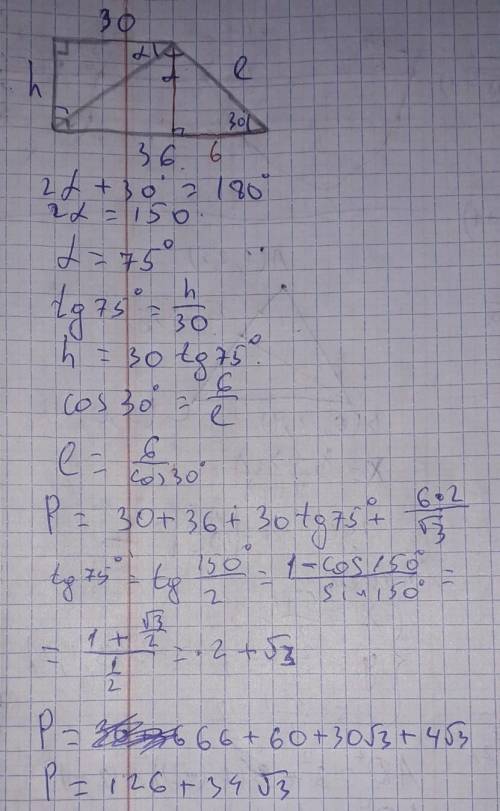 30
h α α e
30°
36 6
2α + 30° = 180°
2α = 150
α = 75°
tg 75° = h/30
h = 30 tg 75°
cos 30° = 6/e
e = 6/cos 30°
P = 30 + 36 + 30 tg 75° + 6·2/√3
tg 75° = tg 150°/2 = 1 - cos 150°/sin 150° =
= 1 + √3/2 / 1/2 = 2 + √3
P = 66 + 60 + 30√3 + 4√3
P = 126 + 34√3